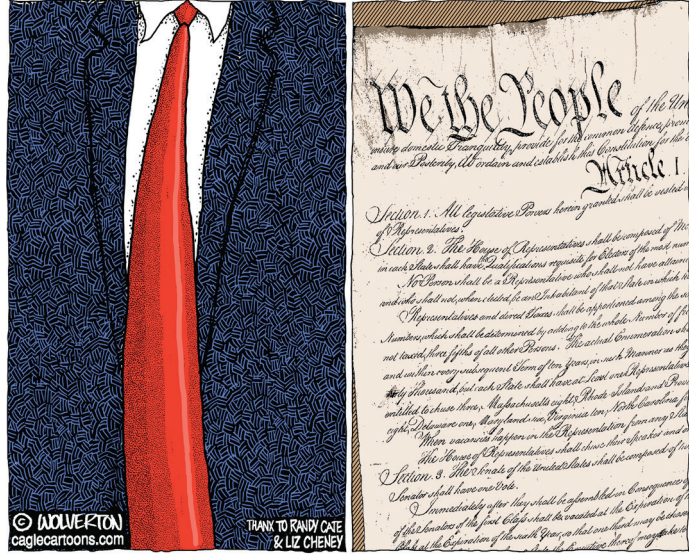 © WOLVERTON
caglecartoons.com
THANX TO RANDY CATE
& LIZ CHENEY
We the People of the Uni
insure domestic Tranquility, provide for the common defence, promo
and our Posterity, do ordain and establish this Constitution for the
Article 1
Section. 1. All legislative Powers herein granted shall be vested
of Representatives.
Section. 2. The House of Representatives shall be composed of Me
in each State shall have Qualifications requisite for Electors of the most num
No Person shall be a Representative who shall not have attaine
and who shall not, when elected, be an Inhabitant of that State in which
Representatives and direct Taxes shall be apportioned among the se
Numbers, which shall be determined by adding to the whole Number of f
not taxed, three fifths of all other Persons. The actual Enumeration sha
and within every subsequent Term of ten Years, in such Manner as they
thirty Thousand, but each State shall have at Least one Representative
entitled to chuse three, Massachusetts eight, Rhode Island and Prov
eight, Delaware one, Maryland six, Virginia ten, North Carolina
When vacancies happen in the Representation from any State
The House of Representatives shall chuse their Speaker and o
Section. 3. The Senate of the United States shall be composed of tw
Senator shall have one Vote.
Immediately after they shall be assembled in Consequence of
of the Senators of the first Class shall be vacated at the Expiration of
Class at the Expiration of the sixth Year, so that one third may be chosen
the Executive thereof may make